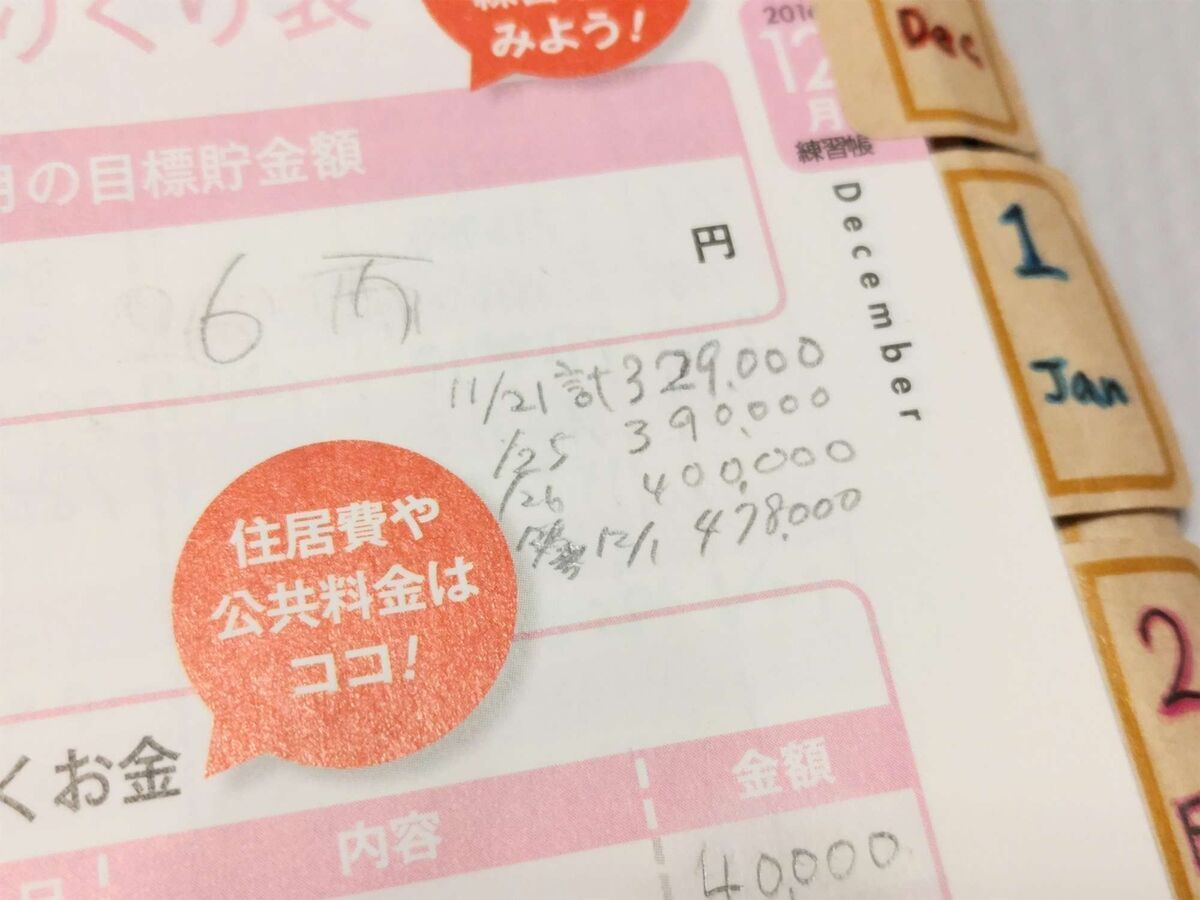 りくり表
みよう!
2016
12
月
練習帳
December
Dec
1
Jan
2
月の目標貯金額
6万
円
11/21 計 329,000
/25 390,000
/26 400,000
12/1 478,000
住居費や
公共料金は
ココ!
くお金
日
内容
金額
40,000